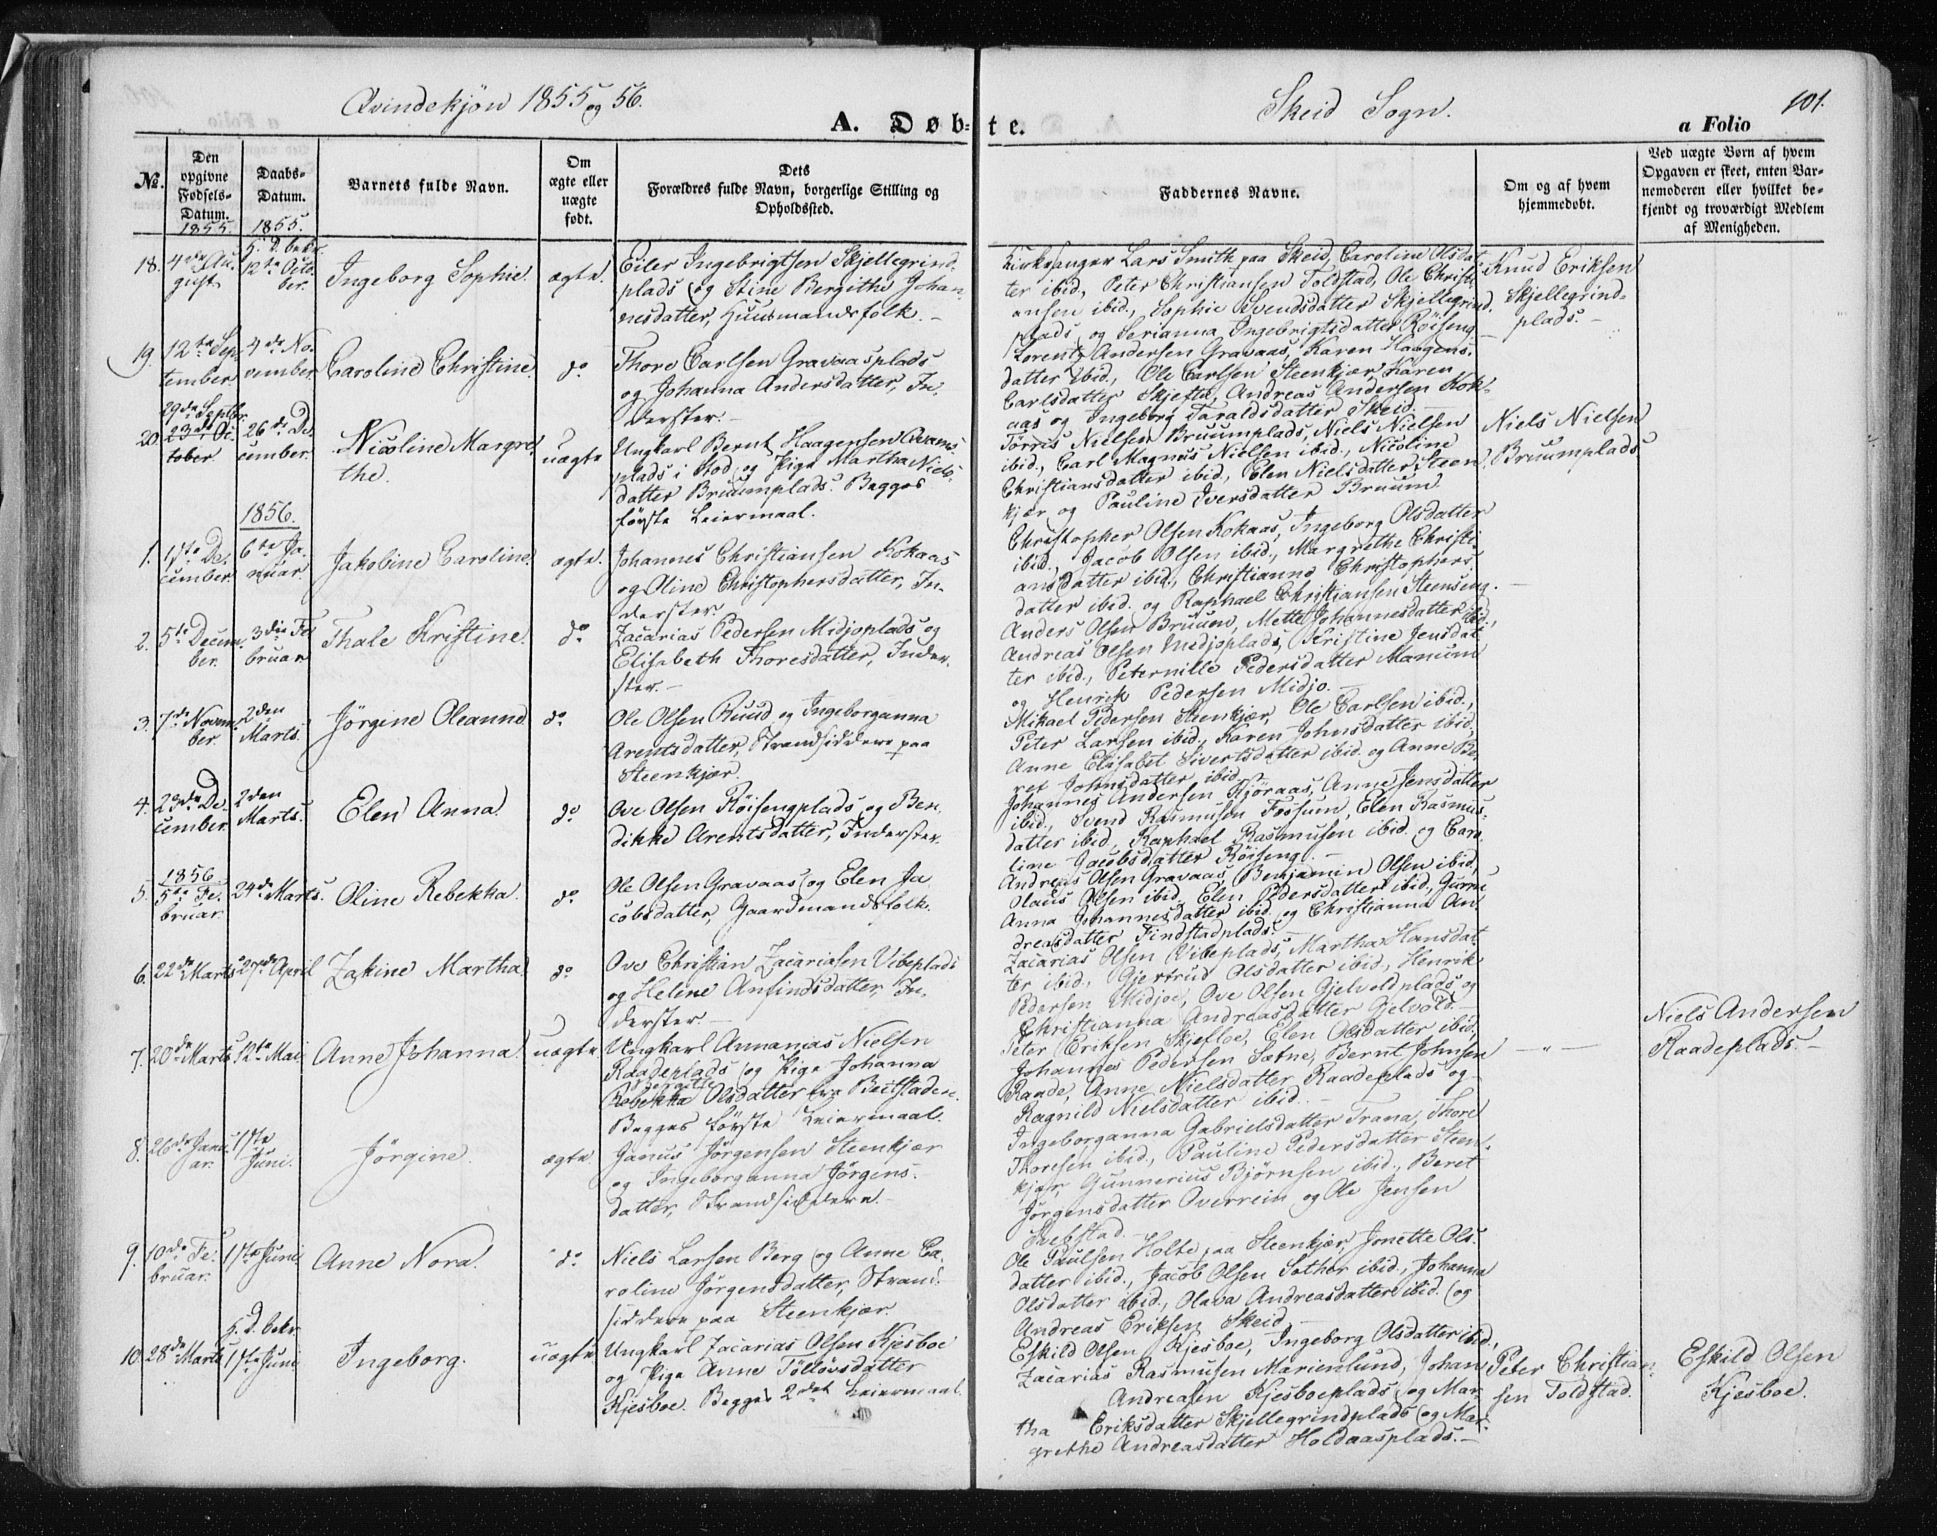 Qvindekjøn 1855 og 56.
Skeid Sogn.
101.
A. Døbte.
a Folio
No.
Den opgivne Fødsels-Datum.
Daabs-Datum.
Barnets fulde Navn.
Om ægte eller uægte født.
Dets Forældres fulde Navn, borgerlige Stilling og Opholdssted.
Faddernes Navne.
Om og af hvem hjemmedøbt.
Ved uægte Børn af hvem Opgaven er skeet, enten Barnemoderen eller hvilket bekjendt og troværdigt Medlem af Menigheden.
1855.
1855.
18.
4de August
H. D. bekr. 12te October.
Ingeborg Sophie.
ægte.
Eiler Ingebrigtsen Skjellegrind-
plads og Stine Bergithe Johan-
nesdatter, Huusmandsfolk.-
Kirkesanger Lars Smith paa Skeid, Caroline Olsdat-
ter ibid, Peter Christiansen Toldstad, Ole Christi-
ansen ibid, Sophie Svendsdatter Skjellegrind-
plads og Serianna Ingebrigtsdatter Röiseng.
Knud Eriksen
Skjellegrind-
plads.-
19.
12te Sep-
tember
4de No-
vember
Caroline Christine.
do
Thore Carlsen Gravaasplads
og Johanna Andersdatter, In-
derster.-
Lorents Andersen Gravaas, Karen Haagens-
datter ibid., Ole Carlsen Steenkjær, Karen
Carlsdatter Skjefte, Andreas Andersen Kok-
aas og Ingeborg Taraldsdatter Skeid.-
20.
29de Septbr
23de Oc-
tober
26de De-
cember.
Nicoline Margre-
the.
uægte
Ungkarl Bernt Haagensen
plads i Stod og Pige Martha Niels-
datter Bruumplads. Begges
første Leiermaal.
Törris Nielsen Bruumplads, Niels Nielsen
ibid., Carl Magnus Nielsen ibid., Nicoline
Christiansdatter ibid., Elen Nielsdatter Steen-
kjær og Pauline Iversdatter Bruum
Niels Nielsen
Bruumplads
1856.
1.
17te De-
cember
6te Ja-
nuar.
Jakobine Caroline.
ægte.
Johannes Christiansen Kokaas
og Oline Christophersdatter, In-
derster
Christopher Olsen Kokaas, Ingeborg Olsdatter
ibid., Jacob Olsen ibid., Margrethe Christi-
ansdatter ibid., Christianna Christophers-
datter ibid. og Raphael Christiansen Steenseng.
2.
5te Decem-
ber.
3die Fe-
bruar
Thale Kristine.
do
Zacarias Pedersen Midjoplads og
Elisabeth Thoresdatter, Inder-
ster.-
Anders Olsen Bruuen, Mette Johannesdatter ibid.,
Andreas Olsen Midjoplads, Kristine Jensdat-
ter ibid., Peternille Pedersdatter Manum
og Henrik Pedersen Midjo.-
3.
7de Novem-
ber.
2den
Marts.
Jörgine Oleanna
do
Ole Olsen Ruud og Ingeborganna
Arentsdatter, Strandsiddere paa
Steenkjær.
Mikael Pedersen Steenkjær, Ole Carlsen ibid.,
Peter Larsen ibid., Karen Johnsdatter ibid,
Anne Elisabet Sivertsdatter ibid. og Anne Be-
ret Johnsdatter ibid.-
4.
23de De-
cember
2den
Marts.
Elen Anna.
do
Ove Olsen Röisengplads og Ben-
dikke Arentsdatter, Inderster.
Johannes Andersen Kjöraas, Anne Jensdatter
ibid., Svend Rasmusen Fossum, Elen Rasmus-
datter ibid, Raphael Rasmusen ibid. og Caro-
line Jacobsdatter Röiseng.-
5.
1856
5te Fe-
bruar.
24de Marts.
Oline Rebekka.
do
Ole Olsen Gravaas og Elen Ja-
cobsdatter, Gaardmandsfolk.
Andreas Olsen Gravaas, Benjamin Olsen ibid,
Olaus Olsen ibid, Elen Pedersdatter ibid,
Anna Johannesdatter ibid. og Christianna An-
dreasdatter Findstadplads.-
6.
22de Marts
27de April
Zakine Martha
do
Ove Christian Zacariasen Vibeplads
og Helene Anfindsdatter, In-
derster.-
Zacarias Olsen Vibeplads, Martha Hansdat-
ter ibid., Gjertrud Olsdatter ibid, Henrik
Pedersen Midjoe, Ove Olsen Gjelvoldplads, og
Christianna Andreasdatter Gjelvold.-
7.
20de Marts
12te Mai
Anne Johanna.
uægte
Ungkarl Annanias Nielsen
Raadeplads og Pige Johanna
Bergitte
Rebekka Olsdatter fra Beitstaden.
Begges første Leiermaal.
Peter Eriksen Skjefloe, Elen Olsdatter ibid.,
Johannes Pedersen Sætne, Bernt Johnsen
Raade, Anne Nielsdatter Raadeplads og
Ragnild Nielsdatter ibid.-
- " -
Niels Andersen
Raadeplads.-
8.
26de Janu-
ar.
1ste
Juni.
Jörgine.
ægte.
Janus Jörgensen Steenkjær
og Ingeborganna Jörgens-
datter, Strandsiddere.-
Ingeborganna Gabrielsdatter Trana, Thore
Thoresen ibid., Pauline Pedersdatter Steen-
kjær, Gunnerius Björnsen ibid., Beret
Jörgensdatter Overrein og Ole Jensen
Svebstad.-
9.
10de Fe-
bruar.
1ste Juni
Anne Nora.
do
Niels Larsen Berg og Anne Ca-
roline Jörgensdatter, Strand-
siddere paa Steenkjær.
Ole Paulsen Holte paa Steenkjær, Jonette Ols-
datter ibid., Jacob Olsen Sother ibid., Johanna
Olsdatter ibid., Olava Andreasdatter ibid. og
Andreas Eriksen Skeid.-
10.
28de Marts
H. D. bekr.
1ste Juni
Ingeborg.
uægte
Ungkarl Zacarias Olsen Kjesboe
og Pige Anne Tollovsdatter
Kjesboe. Begges 2det Leiermaal.
Eskild Olsen Kjesboe, Ingeborg Olsdatter ibid,
Zacarias Rasmusen Marienlund, Johan
Andreasen Kjesboeplads og Mar-
tha Eriksdatter Skjellegrindplads og Mar-
grethe Andreasdatter Holdaasplads.-
Peter Christian-
sen Toldstad.
Eskild Olsen
Kjesboe.